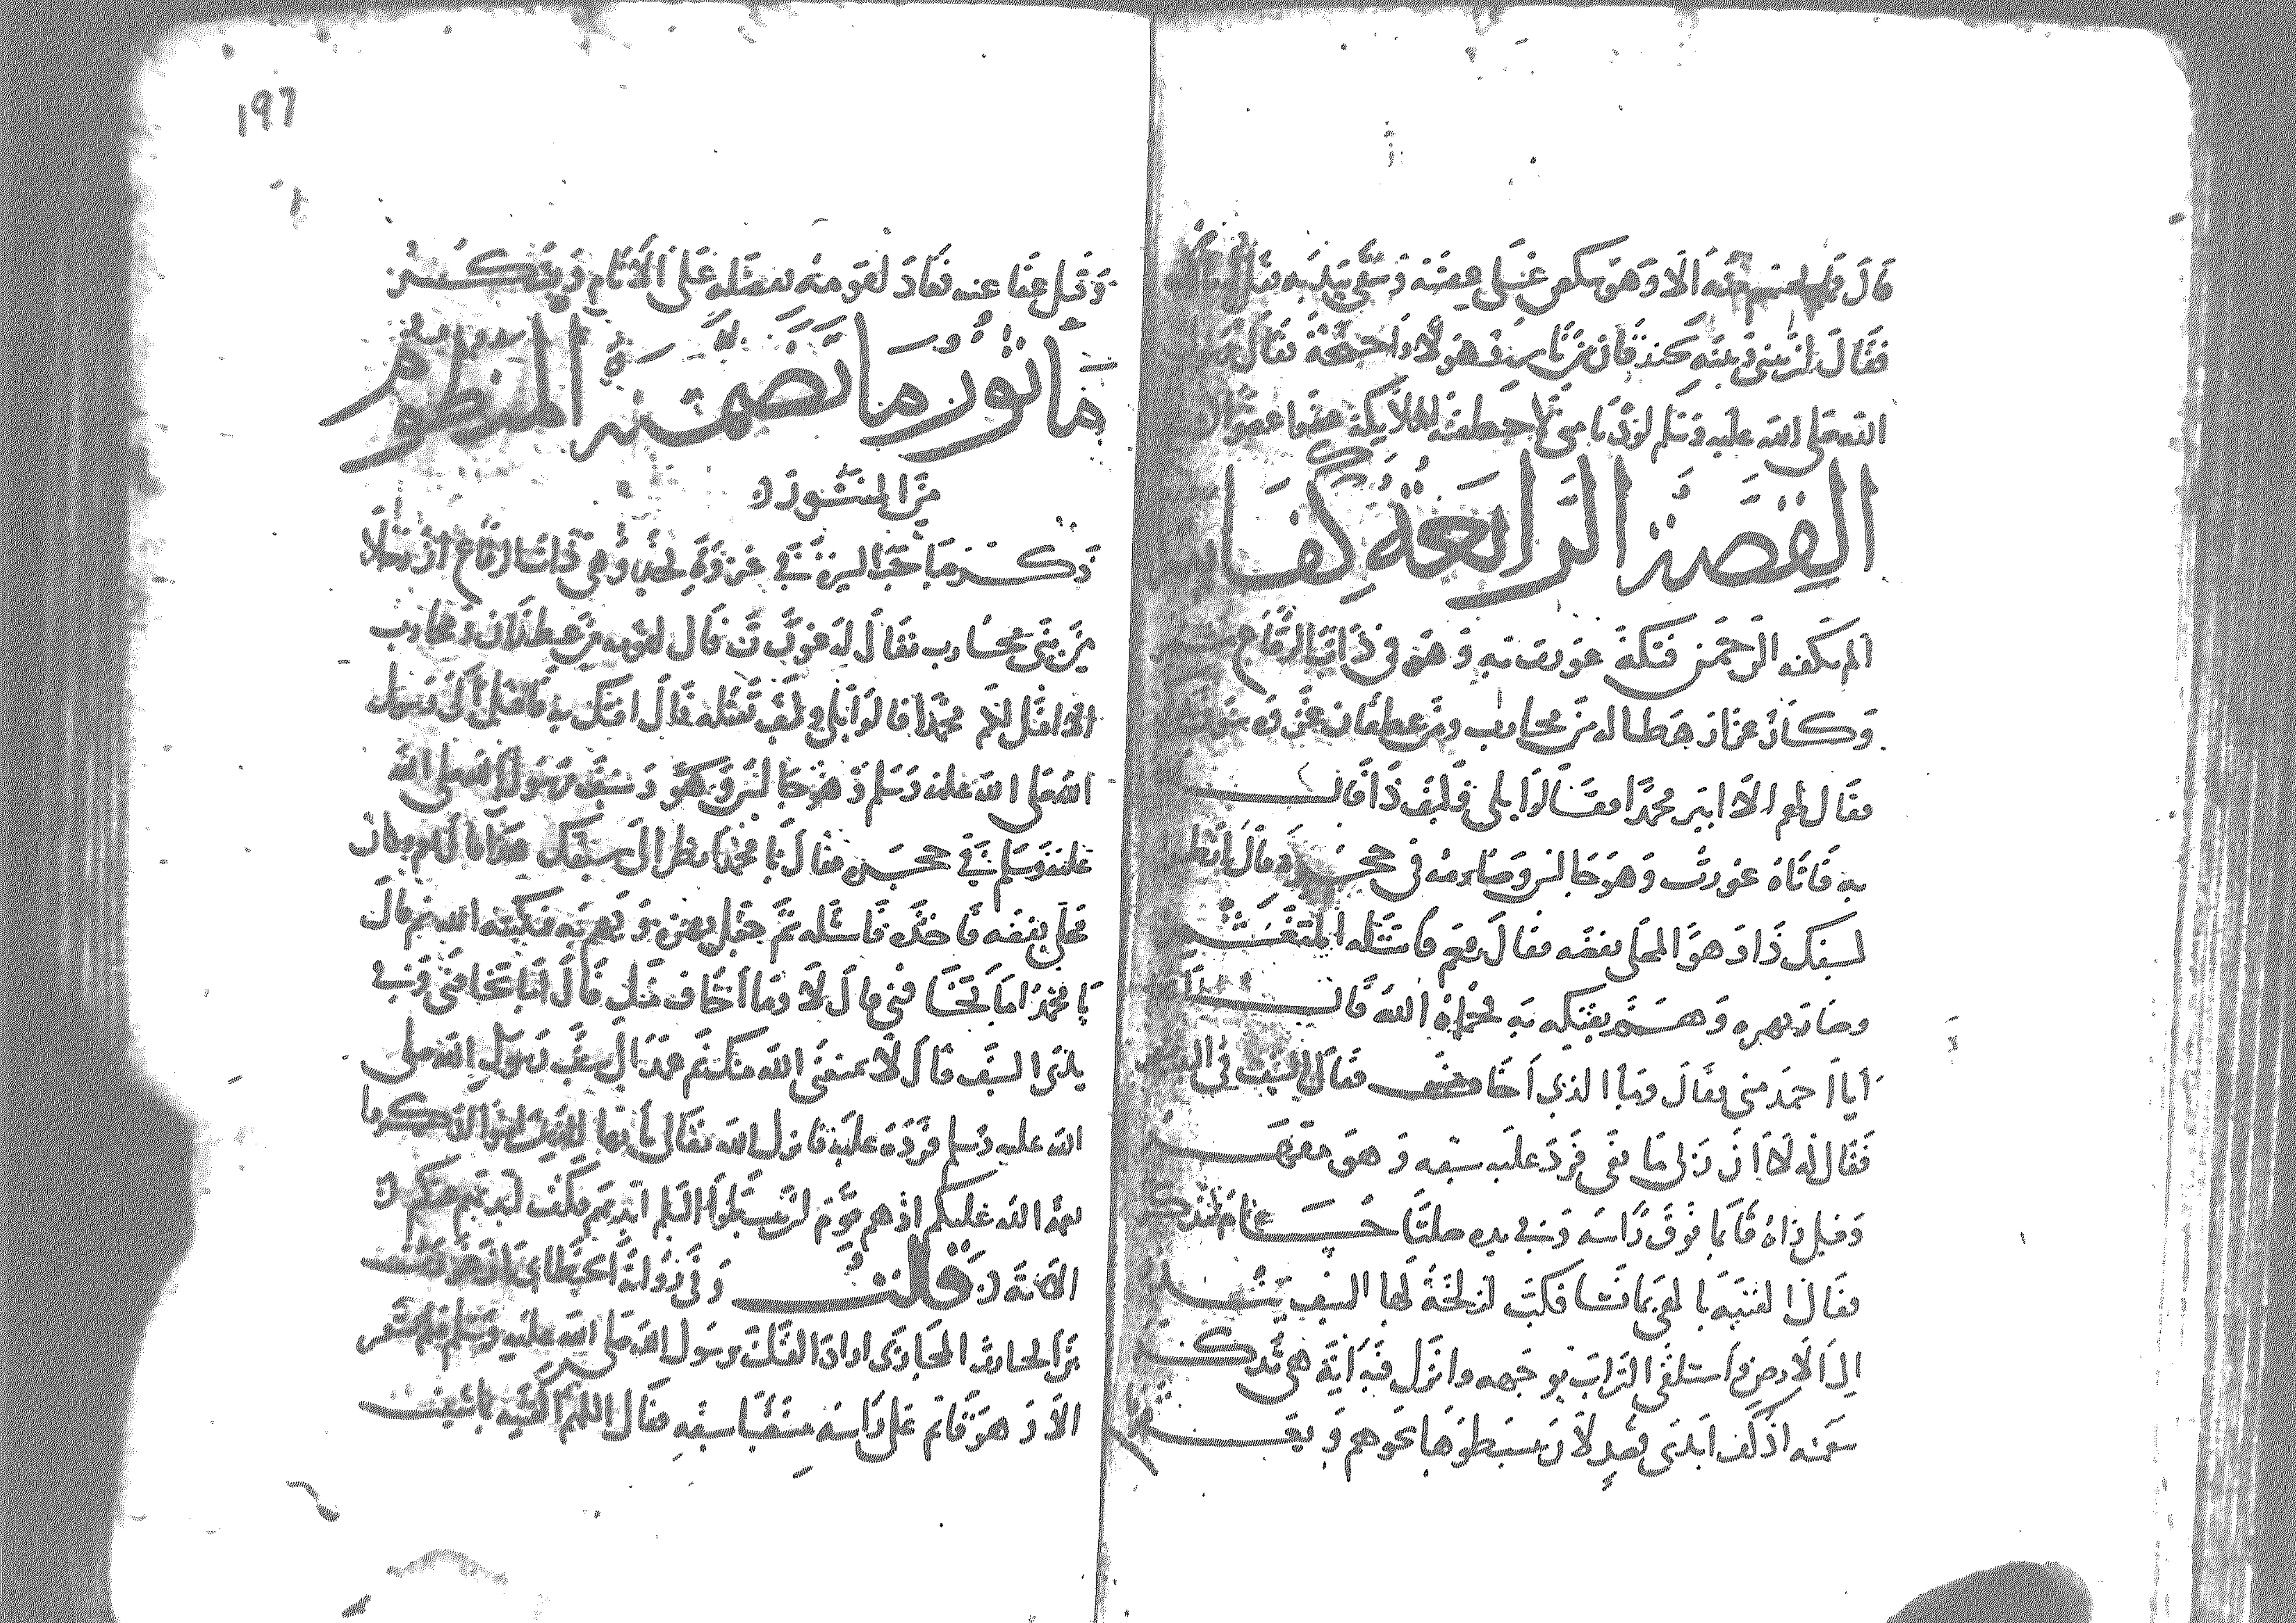 قال فلم الا وهو ينكص على عقبيه ويتقي بيديه
فقال ان بيني وبينه خندقا من نار وهولا واجنحة فقال رسول
الله صلى الله عليه وسلم لو دنا مني لاختطفته الملايكة عضوا عضوا
القصة الرابعة كفا
الم يكفه الرحمن فتكة غورث به وهو في ذات الرقاع
وكان غزا رهطا له من محارب ومن غطفان غزوه
فقال لهم الا ابير محمدا فقالوا بلى فكيف ذا قال
به فاتاه غورث وهو جالس وصارمه في حجره قال انظر
لسيفك ذا وهو المحلى بفضه فقال نعم فاستله
وصار يهزه وهم بفتكه به فحماه الله قال
ايا احمد مني فقال وما الذي اخاف فقال السيف في اليد
فقال له لا ان ربي مانعي فرد عليه سيفه وهو مقهر
وقيل اتاه قايما فوق راسه وفي يده صلتا حسام مذكر
فقال اكفنيه يا الهي بما تشا فكب لزلخة لها السيف
الى الارض واستلقى التراب بوجهه وانزل فيه اية هي تذكر
سمته اذ كف ايدي قصد لان يبسطوها نحوهم
197
وقيل عفا عنه فعاد لقومه بفضله على الانام ويشكر
ماثور ما تضمنه المنظوم
من المنثور
ذكر صاحب السيرة في غزوة نجد وهي ذات الرقاع ان رجلا
من بني محارب يقال له غورث قال لقومه من غطفان ومحارب
الا اقتل لكم محمدا قالوا بلى وكيف تقتله قال افتك به فاقبل الى رسول
الله صلى الله عليه وسلم وهو جالس وسيف رسول الله صلى الله
عليه وسلم في حجره فقال يا محمد انظر الى سيفك هذا قال نعم وكان
محلى بفضه فاخذه فاستله ثم جعل يهزه ويهم به فيكبته الله ثم قال
يا محمد اما تخافني قال لا وما اخاف منك قال اما تخافني وفي
يدي السيف قال لا يمنعني الله منك ثم عمد الى سيف رسول الله صلى
الله عليه وسلم فرده عليه فانزل الله تعالى يا ايها الذين امنوا اذكروا
نعمة الله عليكم اذ هم قوم ان يبسطوا اليكم ايديهم فكف ايديهم عنكم
الاية قلت وفي رواية الخطابي ان غورث
بن الحارث المحاربي اراد الفتك برسول الله صلى الله عليه وسلم فلم يشعر
الا وهو قائم على راسه منتضيا سيفه فقال اللهم اكفنيه بما شيت